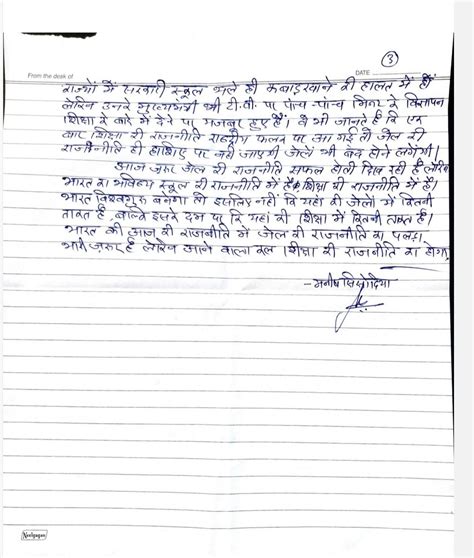 3
From the desk of
DATE
राज्यों में सरकारी स्कूल भले ही कबाड़खाने की हालत में हों
लेकिन उनके मुख्यमंत्री भी टी.वी. पर पांच-पांच मिनट के विज्ञापन
शिक्षा के बारे में देने पर मजबूर हुए हैं। वे भी जानते हैं कि एक
बार शिक्षा की राजनीति राष्ट्रीय फलक पर आ गई तो जेल की
राजनीति ही हाशिए पर नहीं जाएगी जेलें भी बंद होने लगेंगी।
आज जरूर जेल की राजनीति सफल होती दिख रही है लेकिन
भारत का भविष्य स्कूल की राजनीति में है शिक्षा की राजनीति में है।
भारत विश्वगुरू बनेगा तो इसलिए नहीं कि यहां की जेलों में कितनी
ताकत है, बल्कि इसके दम पर कि यहां की शिक्षा में कितनी ताकत है।
भारत की आज की राजनीति में जेल की राजनीति का पलड़ा
भारी ज़रूर है लेकिन आने वाला कल शिक्षा की राजनीति का होगा,
- मनीष सिसोदिया
Neelgagan